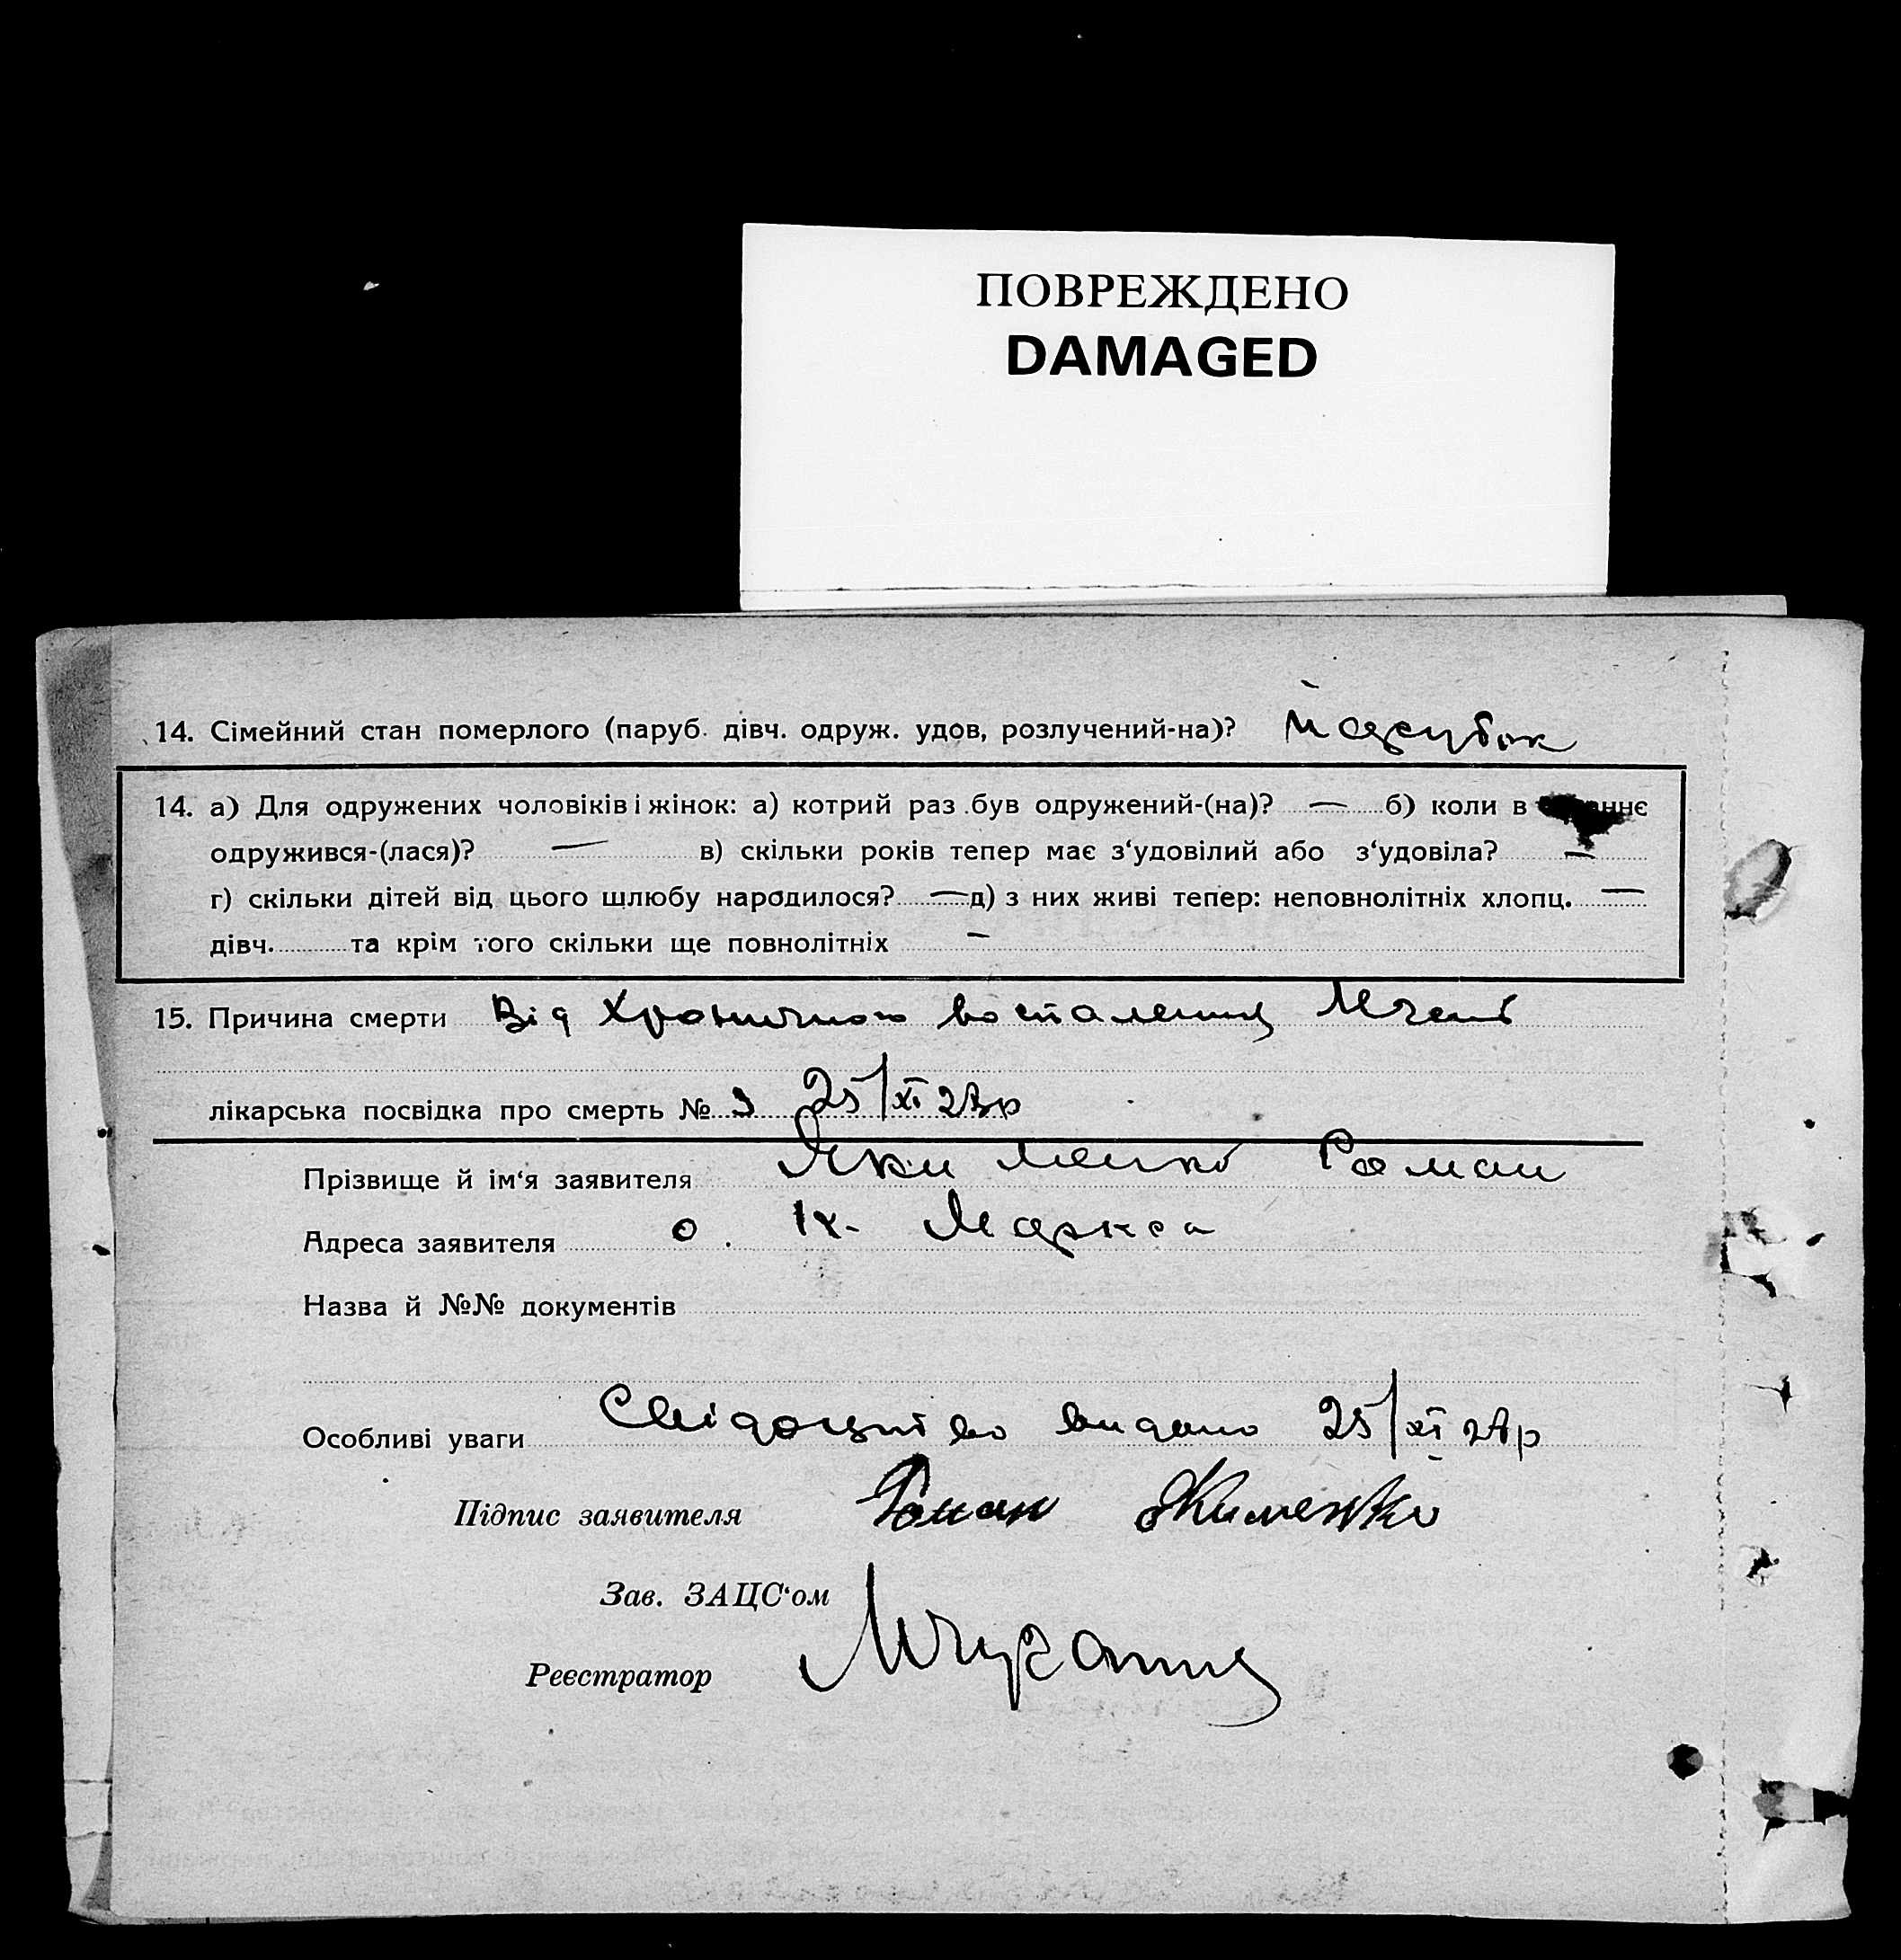 ПОВРЕЖДЕНО
DAMAGED
14. Сімейний стан померлого (паруб. дівч. одруж. удов, розлучений-на)? парубок
14. а) Для одружених чоловіків і жінок: а) котрий раз був одружений-(на)? — б) коли в
одружився-(лася)? — в) скільки років тепер має з‘удовілий або з‘удовіла? —
г) скільки дітей від цього шлюбу народилося? — д) з них живі тепер: неповнолітніх хлопц. —
дівч. та крім того скільки ще повнолітніх —
15. Причина смерти Від хроничного воспаления
лікарська посвідка про смерть № 3 25/XI
Прізвище й ім‘я заявителя Якименко Роман
Адреса заявителя о. К. Маркса
Назва й №№ документів
Особливі уваги Свідоцтво видано 25/XI
Підпис заявителя Роман Якименко
Зав. ЗАЦС‘ом
Реєстратор